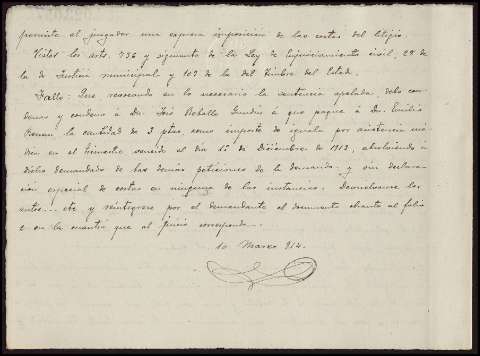 permite al juzgador una expresa imposición de las costas del litigio.
Vistos los arts. 736 y siguientes de la Ley de Enjuiciamiento civil, 28 de
la de Justicia municipal y 109 de la del Timbre del Estado.
Fallo: Que revocando en lo necesario la sentencia apelada debo con-
denar y condeno á Dn. José á que pague á Dn. Emilio
la cantidad de 3 ptas. como importe de iguala por asistencia mé-
dica en el trimestre vencido al día 15 de Diciembre de 1913, absolviendo á
dicho demandado de las demás peticiones de la demanda y sin declara-
ción especial de costas en ninguna de las instancias. Devuélvanse los
autos... etc y reintégrese por el demandante el documento obrante al folio
2 en la cuantía que al juicio corresponde.
10 Marzo 914.